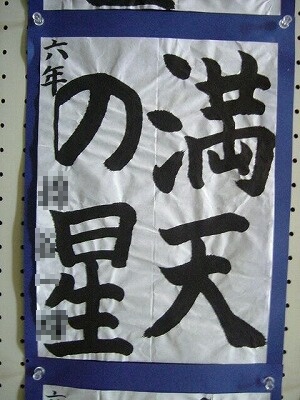 満天
の星
六年